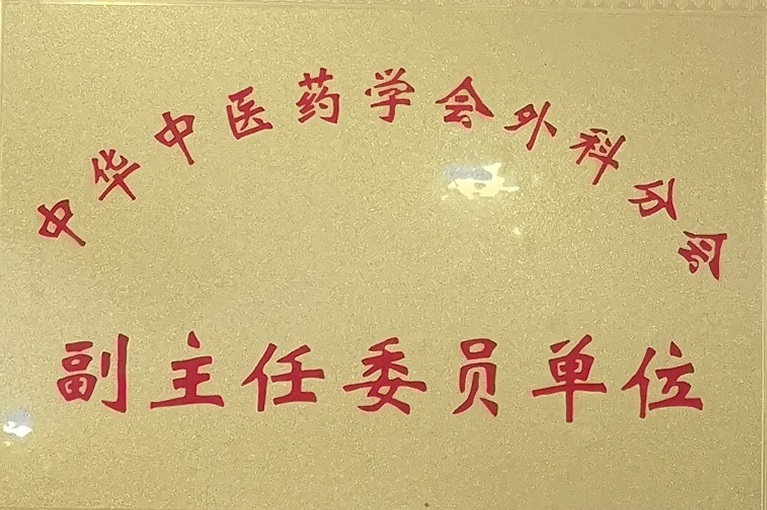 中华中医药学会外科分会
副主任委员单位